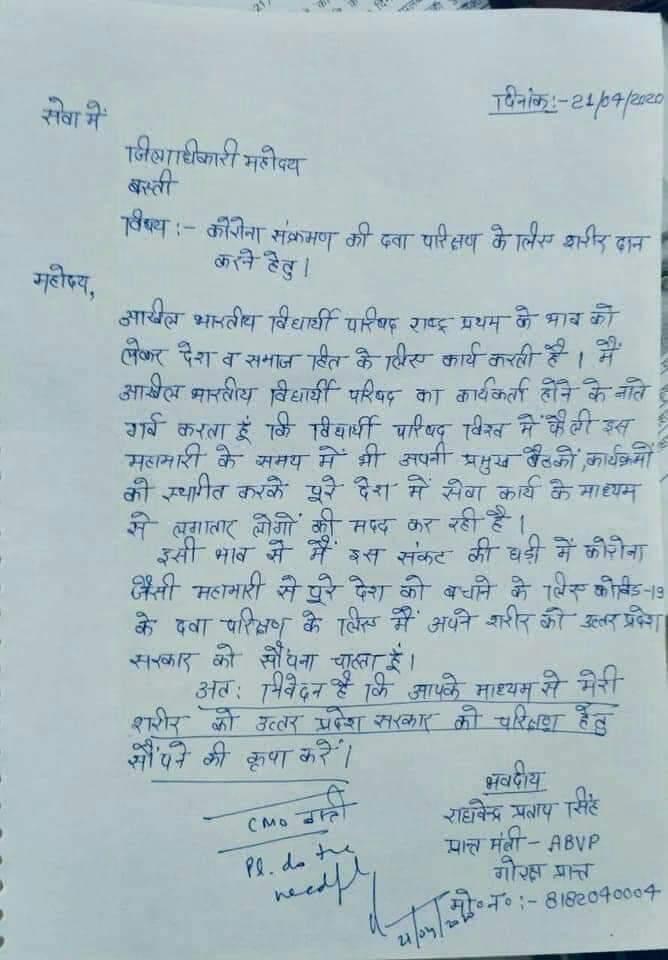 दिनांक:-21/04/2020
सेवा में
जिलाधिकारी महोदय
बस्ती
विषय:- कोरोना संक्रमण की दवा परिक्षण के लिए शरीर दान
करने हेतु।
महोदय,
अखिल भारतीय विद्यार्थी परिषद राष्ट्र प्रथम के भाव को
लेकर देश व समाज हित के लिए कार्य करती है। मैं
अखिल भारतीय विद्यार्थी परिषद का कार्यकर्ता होने के नाते
गर्व करता हूं कि विद्यार्थी परिषद विश्व में फैली इस
महामारी के समय में भी अपनी प्रमुख बैठकों, कार्यक्रमों
को स्थगित करके पूरे देश में सेवा कार्य के माध्यम
से लगातार लोगों की मदद कर रही है।
इसी भाव से मैं इस संकट की घड़ी में कोरोना
जैसी महामारी से पूरे देश को बचाने के लिए कोविड-19
के दवा परिक्षण के लिए मैं अपने शरीर को उत्तर प्रदेश
सरकार को सौंपना चाहता हूं।
अतः निवेदन है कि आपके माध्यम से मेरी
शरीर को उत्तर प्रदेश सरकार को परिक्षण हेतु
सौंपने की कृपा करें।
भवदीय
राघवेन्द्र प्रताप सिंह
प्रान्त मंत्री - ABVP
गोरक्ष प्रान्त
मो॰न॰:- 8182040004
CMO बस्ती
Pl. do the
needful
21/04/2020